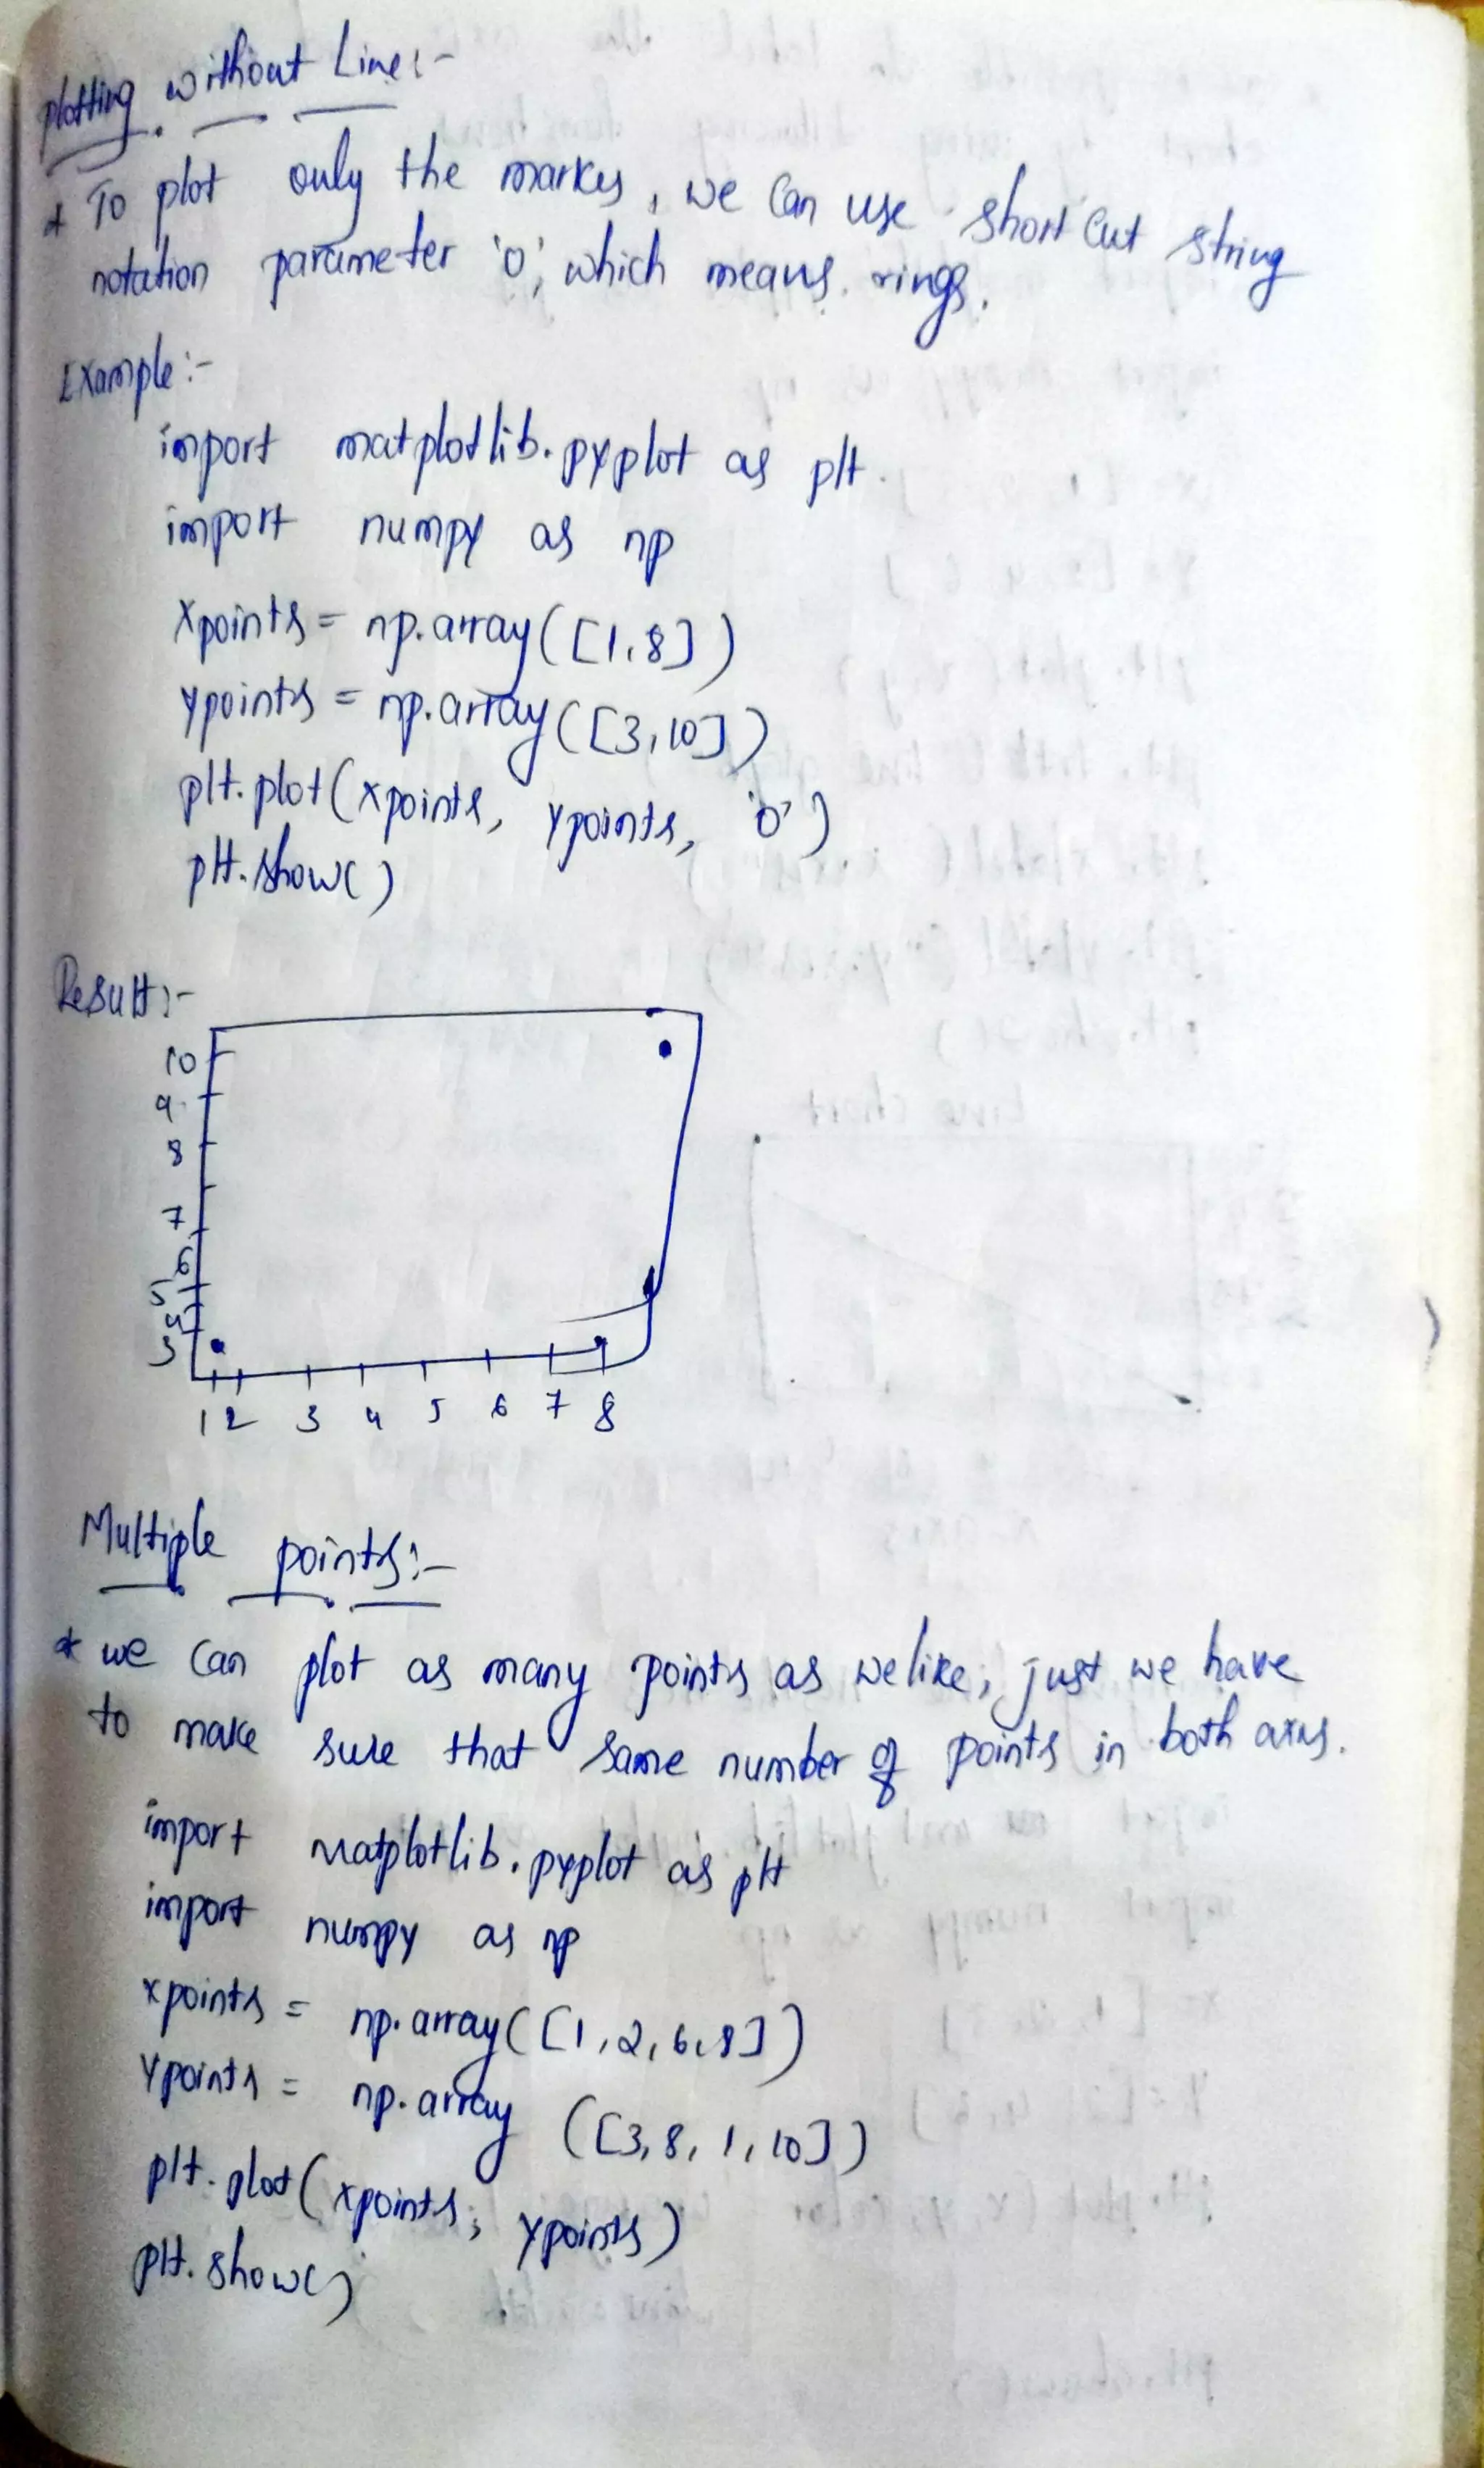 plotting without Line:-
* To plot only the markes, we can use short cut string
notation parameter 'o', which means rings.
Example:-
import matplotlib.pyplot as plt
import numpy as np
xpoints = np.array([1,8])
ypoints = np.array([3,10])
plt.plot(xpoints, ypoints, 'o')
plt.show()
Result:-
10
9
8
7
6
5
4
3
1 2 3 4 5 6 7 8
Multiple points:-
* we can plot as many points as we like, just we have
to make sure that same number of points in both axis.
import matplotlib.pyplot as plt
import numpy as np
xpoints = np.array([1,2,6,8])
ypoints = np.array ([3,8,1,10])
plt.plot(xpoints, ypoints)
plt.show()